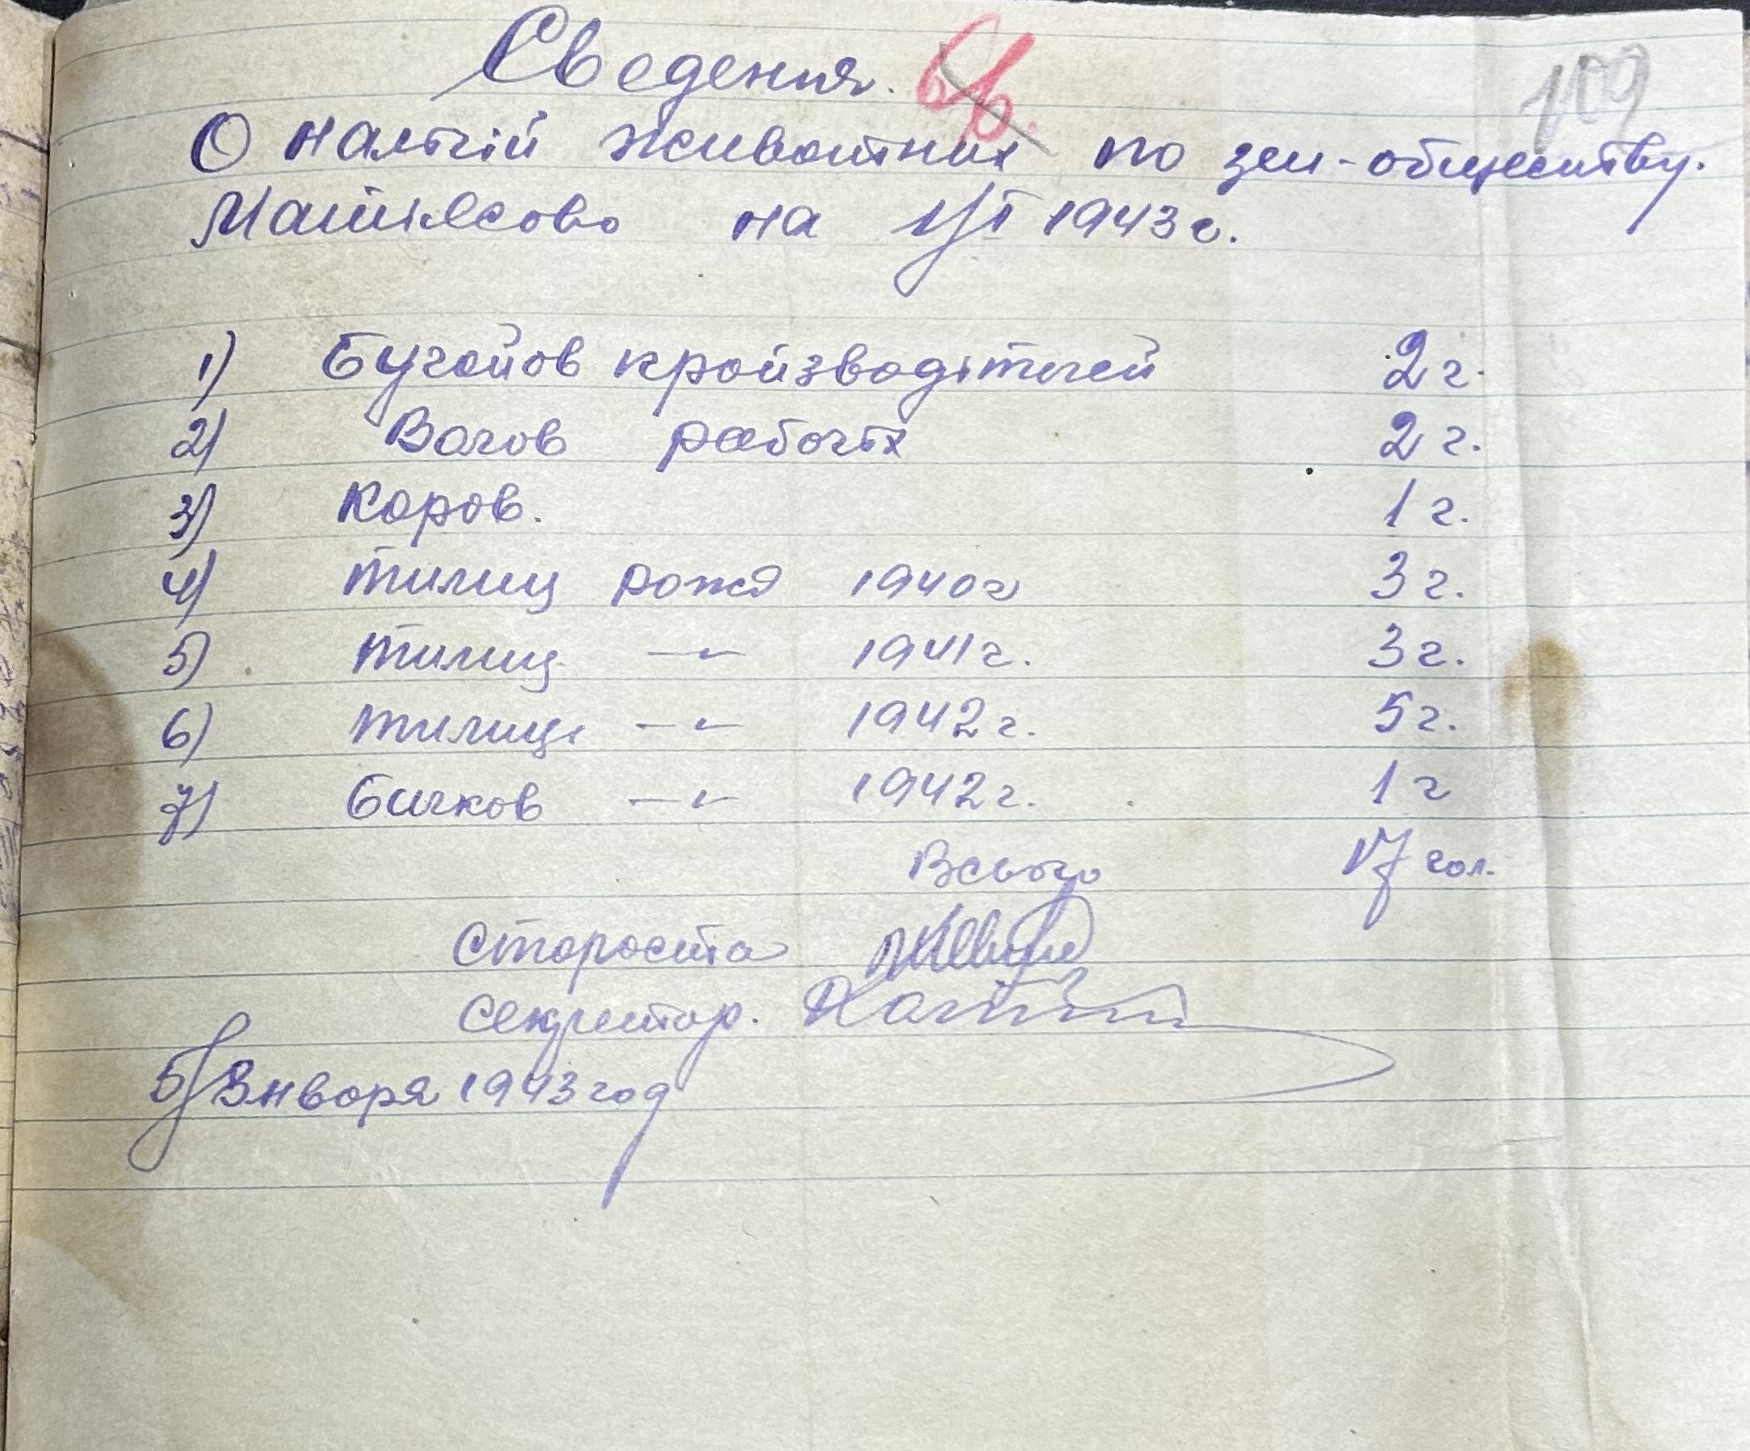 Сведения. 66. 109
О налічій животних по зем-обществу.
Матясово на 1/I 1943 г.
1) Бугайов кроізводітелей 2 г.
2)Волов рабочіх 2 г.
3) Коров. 1 г.
4) тилиц рожд 1940 г 3 г.
5) тилиц —"— 1941 г. 3 г.
6) тилиці —"— 1942 г. 5 г.
7) бичков —"— 1942 г. 1 г
Всього 17 гол.
Староста
Секритар.
5/Января 1943 год